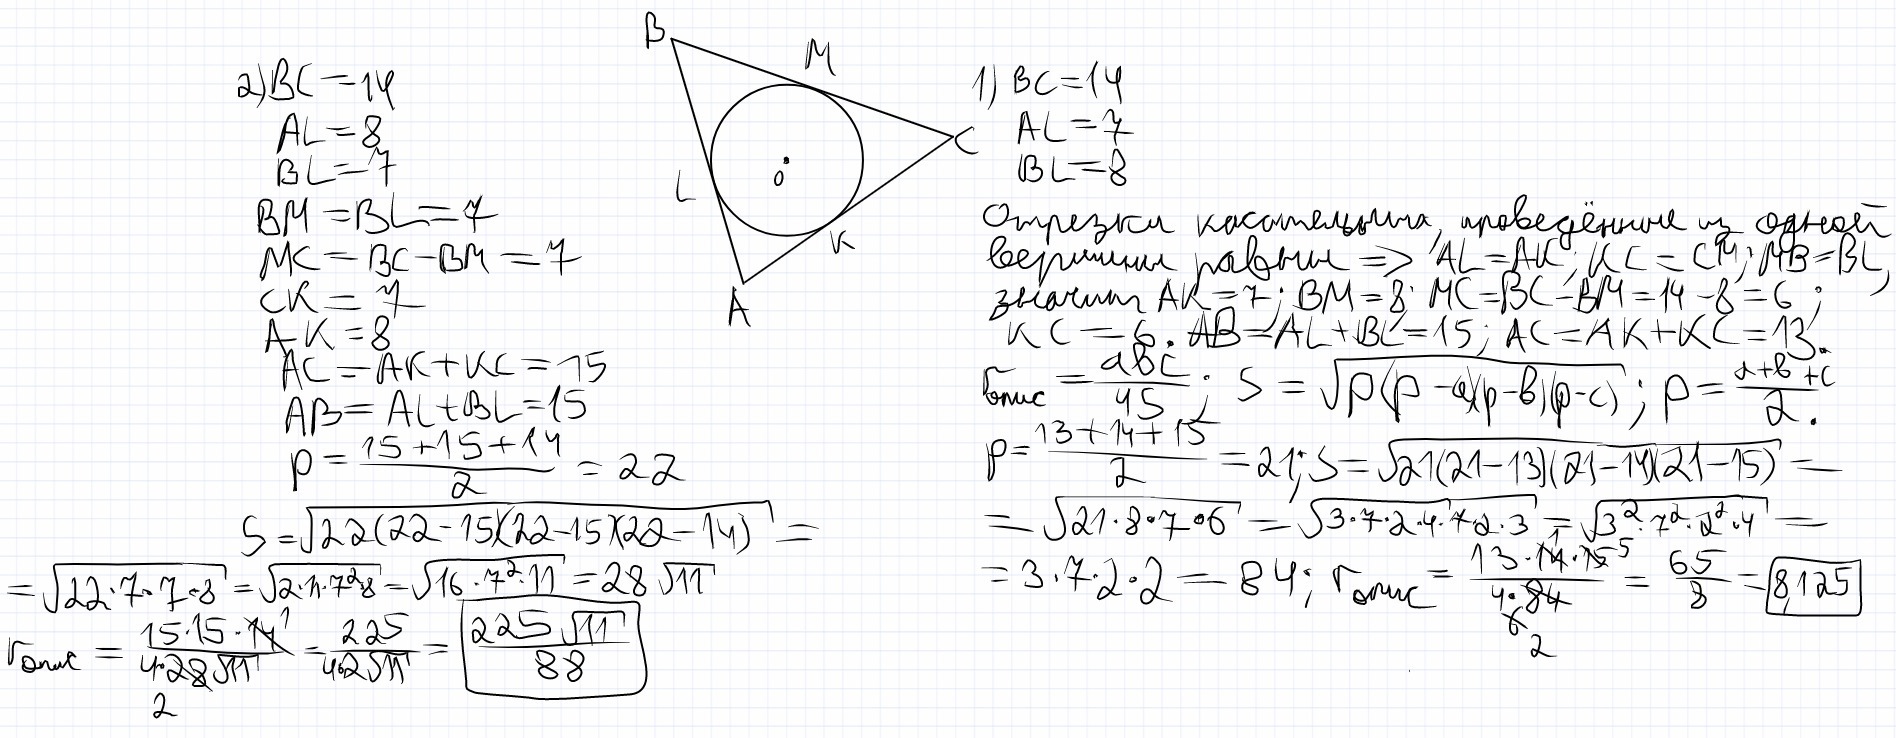 2) BC = 14
AL = 8
BL = 7
BM = BL = 7
MC = BC - BM = 7
CK = 7
AK = 8
AC = AK + KC = 15
AB = AL + BL = 15
p = (15 + 15 + 14)/2 = 22
S = √(22(22 - 15)(22 - 15)(22 - 14)) =
= √(22·7·7·8) = √(2·11·7²·8) = √(16·7²·11) = 28√11
rопис = (15·15·14 1)/(4·28√11) = 225/(4·2√11) = 225√11/88
2
B
M
C
L
O
K
A
1) BC = 14
AL = 7
BL = 8
Отрезки касательных, проведённые из одной
вершины равны => AL = AK; KC = CM; MB = BL,
значит AK = 7; BM = 8; MC = BC - BM = 14 - 8 = 6;
KC = 6. AB = AL + BL = 15; AC = AK + KC = 13.
rопис = abc/4S; S = √(p(p - a)(p - b)(p - c)); p = (a + b + c)/2.
p = (13 + 14 + 15)/2 = 21; S = √(21(21 - 13)(21 - 14)(21 - 15)) =
= √(21·8·7·6) = √(3·7·2·4·7·2·3) = √(3²·7²·2²·4) =
= 3·7·2·2 = 84; rопис = (13·14 1·15 5)/(4·84) = 65/8 = 8,125
6
2